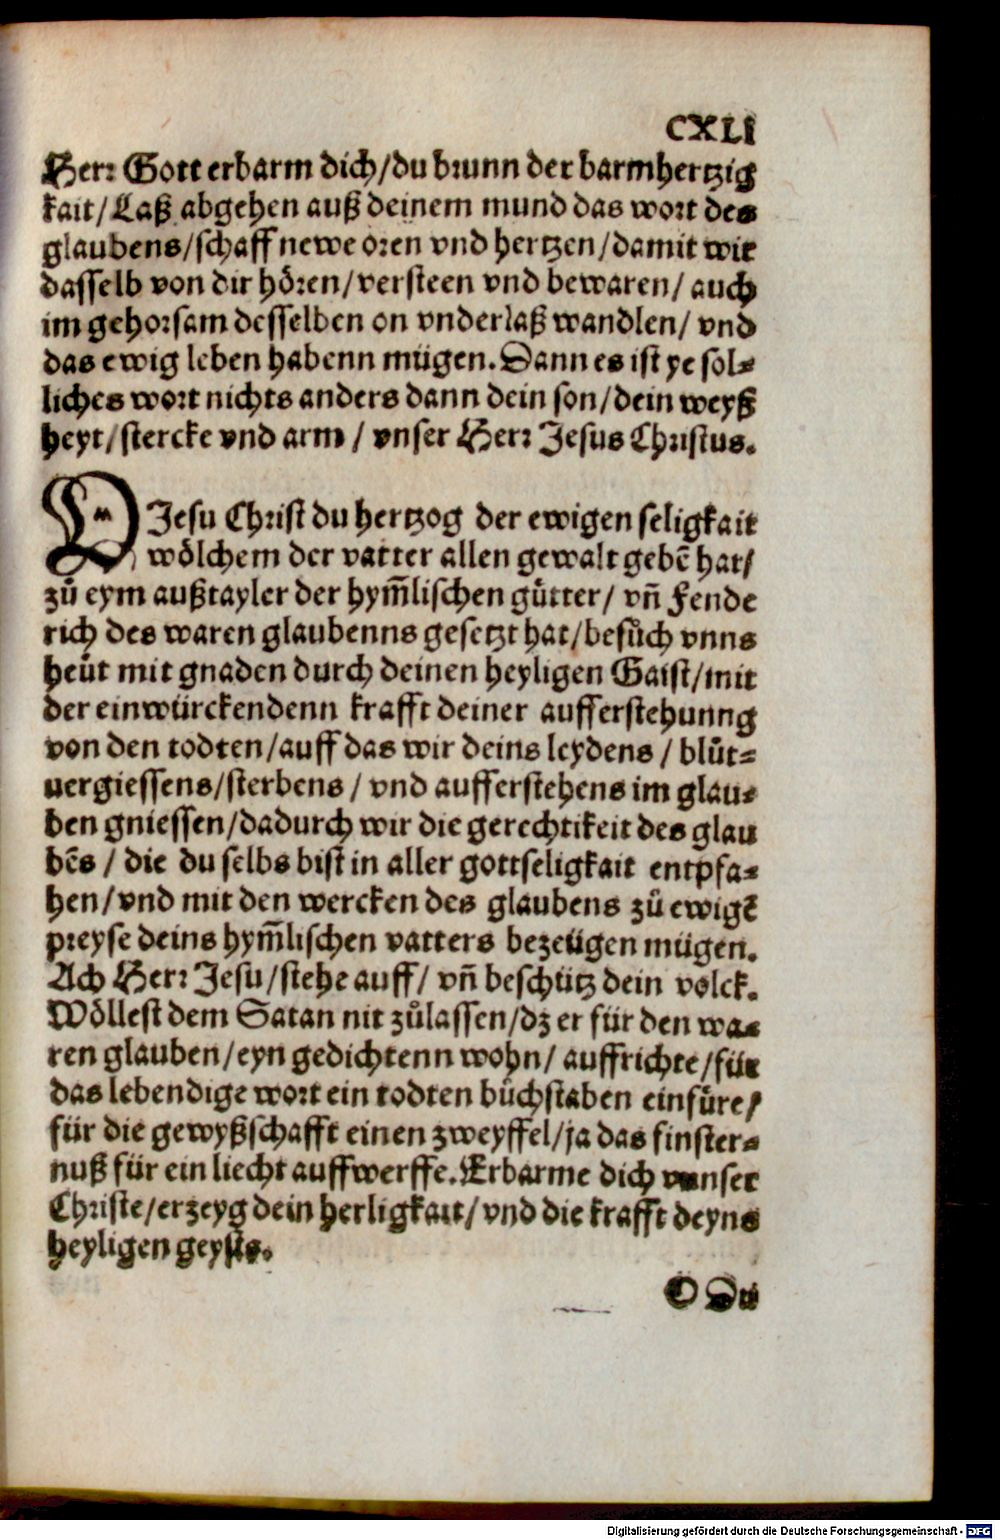 CXLI
Herr Gott erbarm dich/du brunn der barmhertzig
kait/Laß abgehen auß deinem mund das wort des
glaubens/schaff newe oren vnd hertzen/damit wir
dasselb von dir hören/versteen vnd bewaren/auch
im gehorsam desselben on vnderlaß wandlen/vnd
das ewig leben habenn mügen. Dann es ist ye sol⸗
liches wort nichts anders dann dein son/dein weyß
heyt/stercke vnd arm/vnser Herr Jesus Christus.
O Jesu Christ du hertzog der ewigen seligkait
wölchem der vatter allen gewalt gebẽ hat/
zů eym außtayler der hym̃lischen gůtter/vñ Fende
rich des waren glaubenns gesetzt hat/besůch vnns
heüt mit gnaden durch deinen heyligen Gaist/mit
der einwürckendenn krafft deiner aufferstehunng
von den todten/auff das wir deins leydens/blůt⸗
uergiessens/sterbens/vnd aufferstehens im glau⸗
ben gniessen/dadurch wir die gerechtikeit des glau
bẽs/die du selbs bist in aller gottseligkait entpfa⸗
hen/vnd mit den wercken des glaubens zů ewigẽ
preyse deins hym̃lischen vatters bezeügen mügen.
Ach Herr Jesu/stehe auff/vñ beschütz dein volck.
Wöllest dem Satan nit zůlassen/dz er für den wa⸗
ren glauben/eyn gedichtenn wohn/auffrichte/für
das lebendige wort ein todten bůchstaben einfůre/
für die gewyßschafft einen zweyffel/ja das finster⸗
nuß für ein liecht auffwerffe. Erbarme dich vnnser
Christe/erzeyg dein herligkait/vnd die krafft deyns
heyligen geysts.
O Du
Digitalisierung gefördert durch die Deutsche Forschungsgemeinschaft - DFG